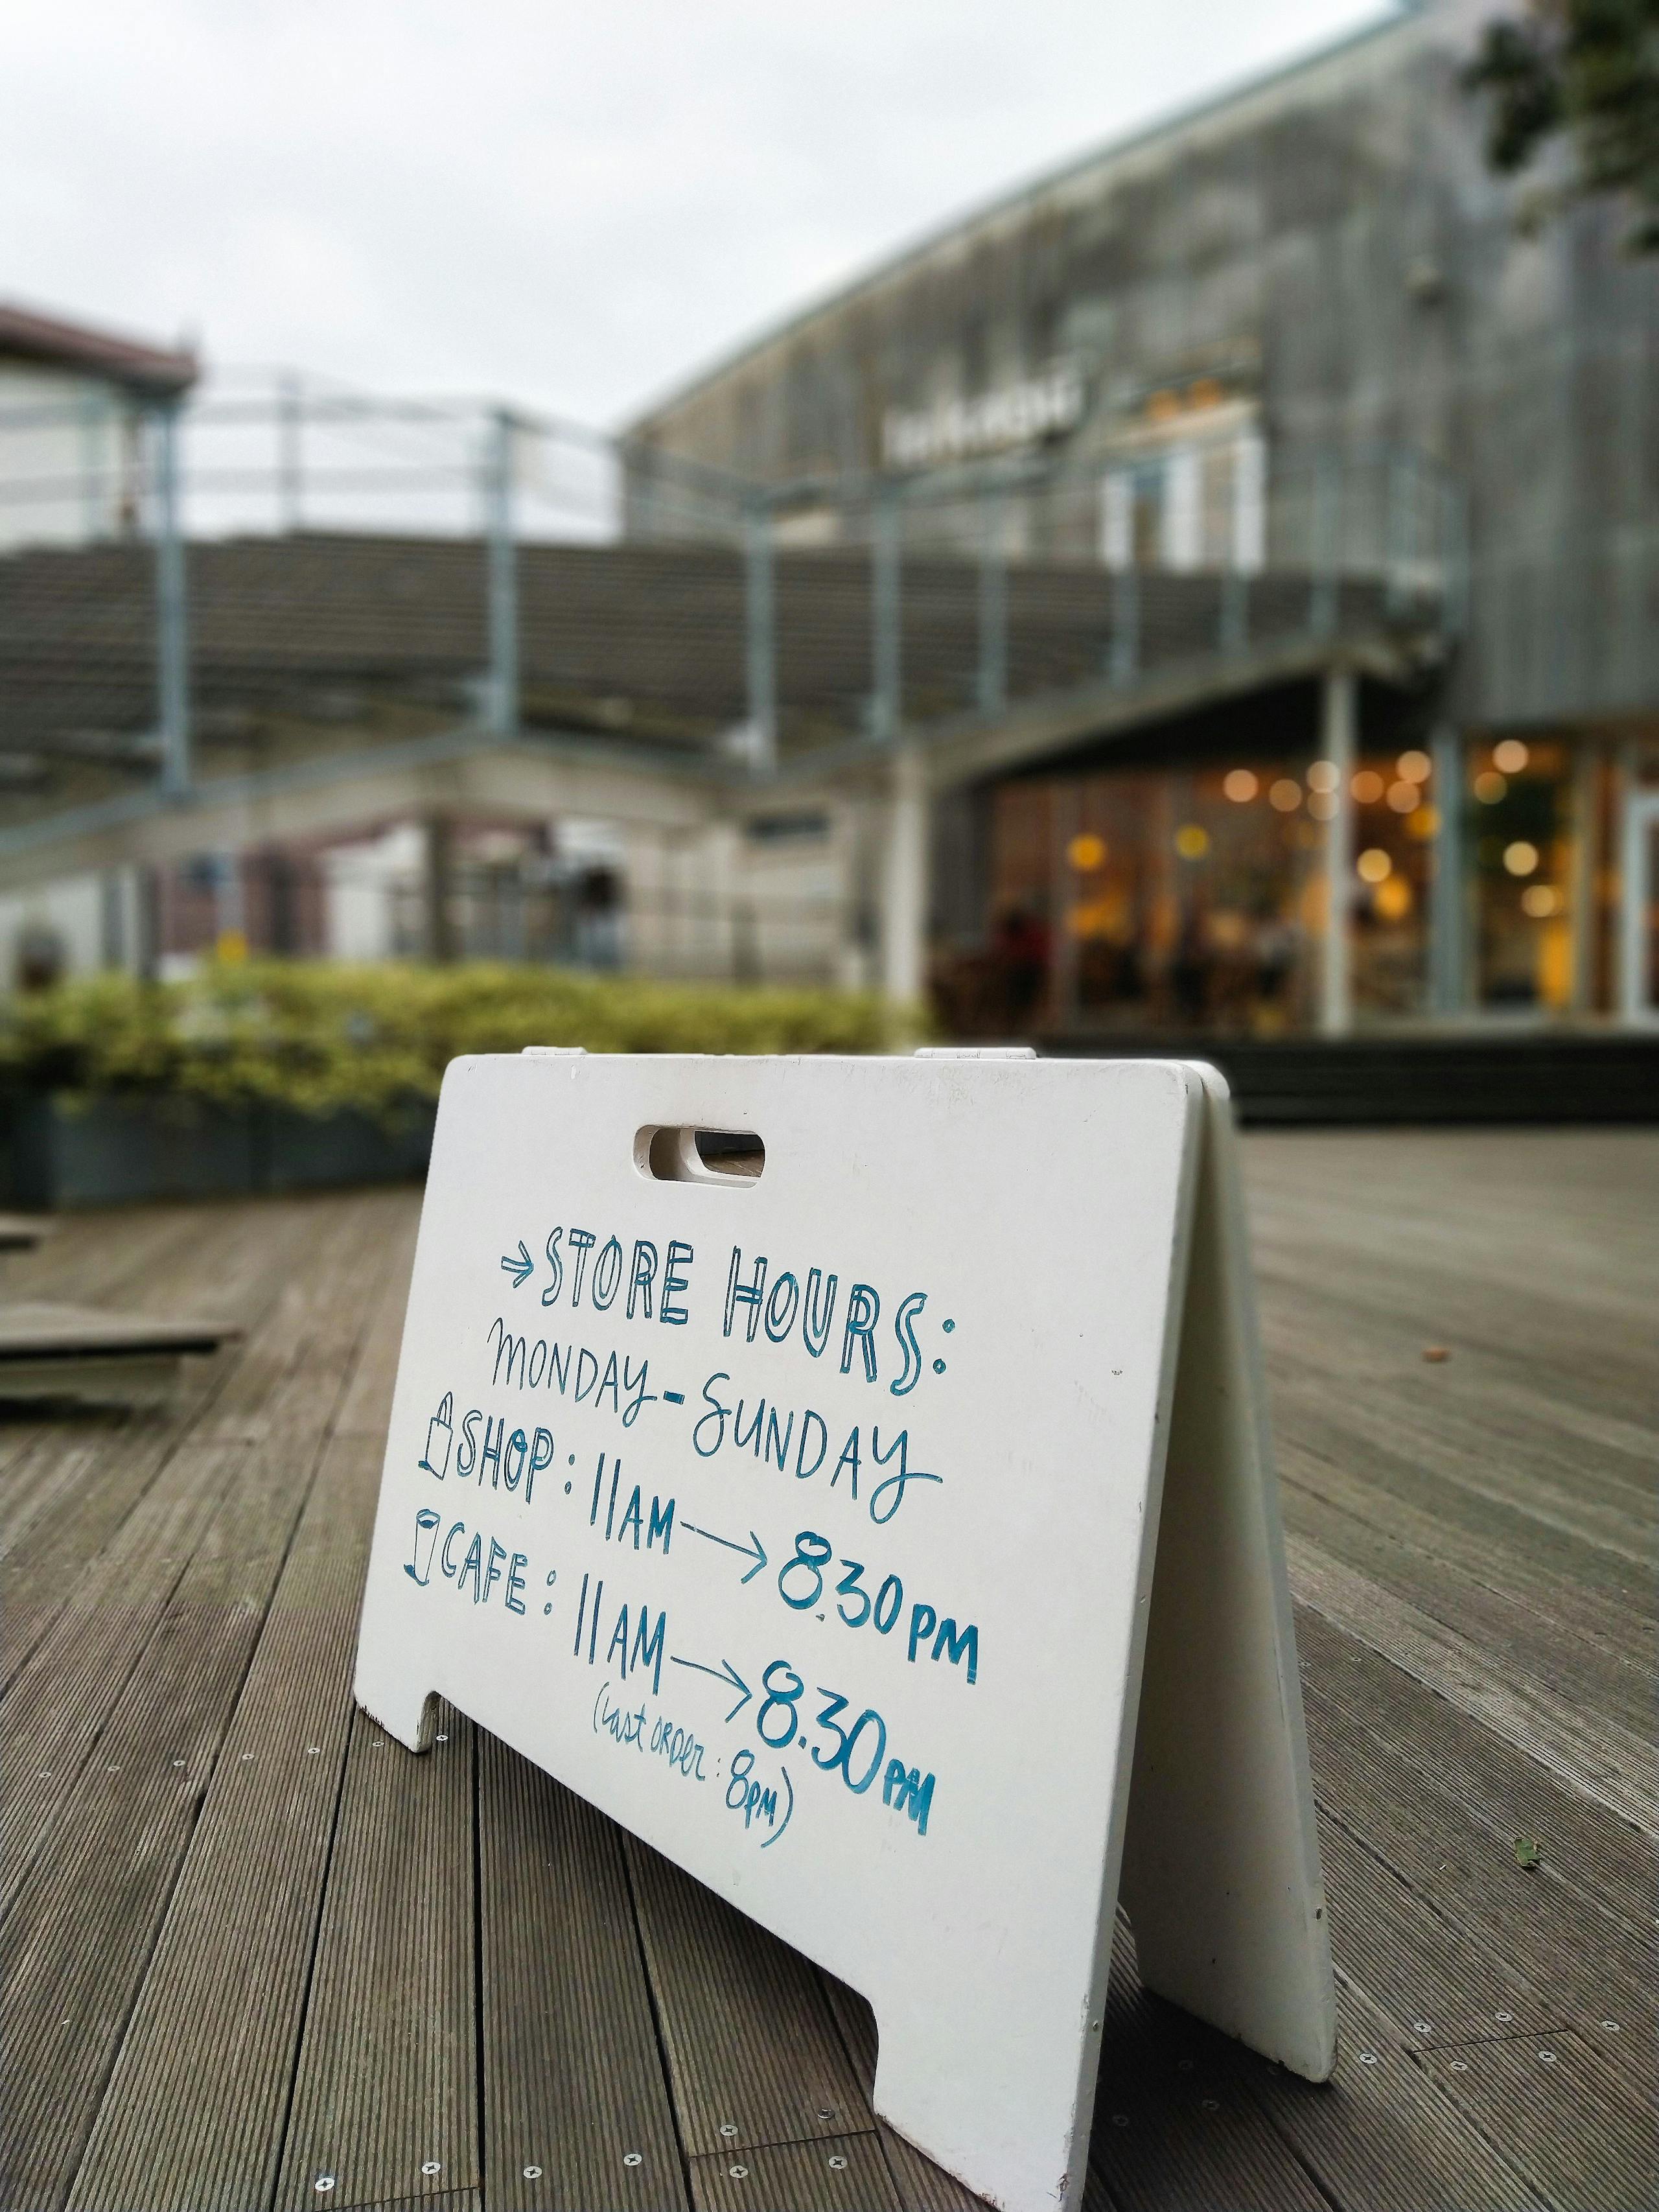 → STORE HOURS:
MONDAY - SUNDAY
SHOP : 11AM → 8.30PM
CAFE : 11AM → 8.30PM
(Last order : 8PM)